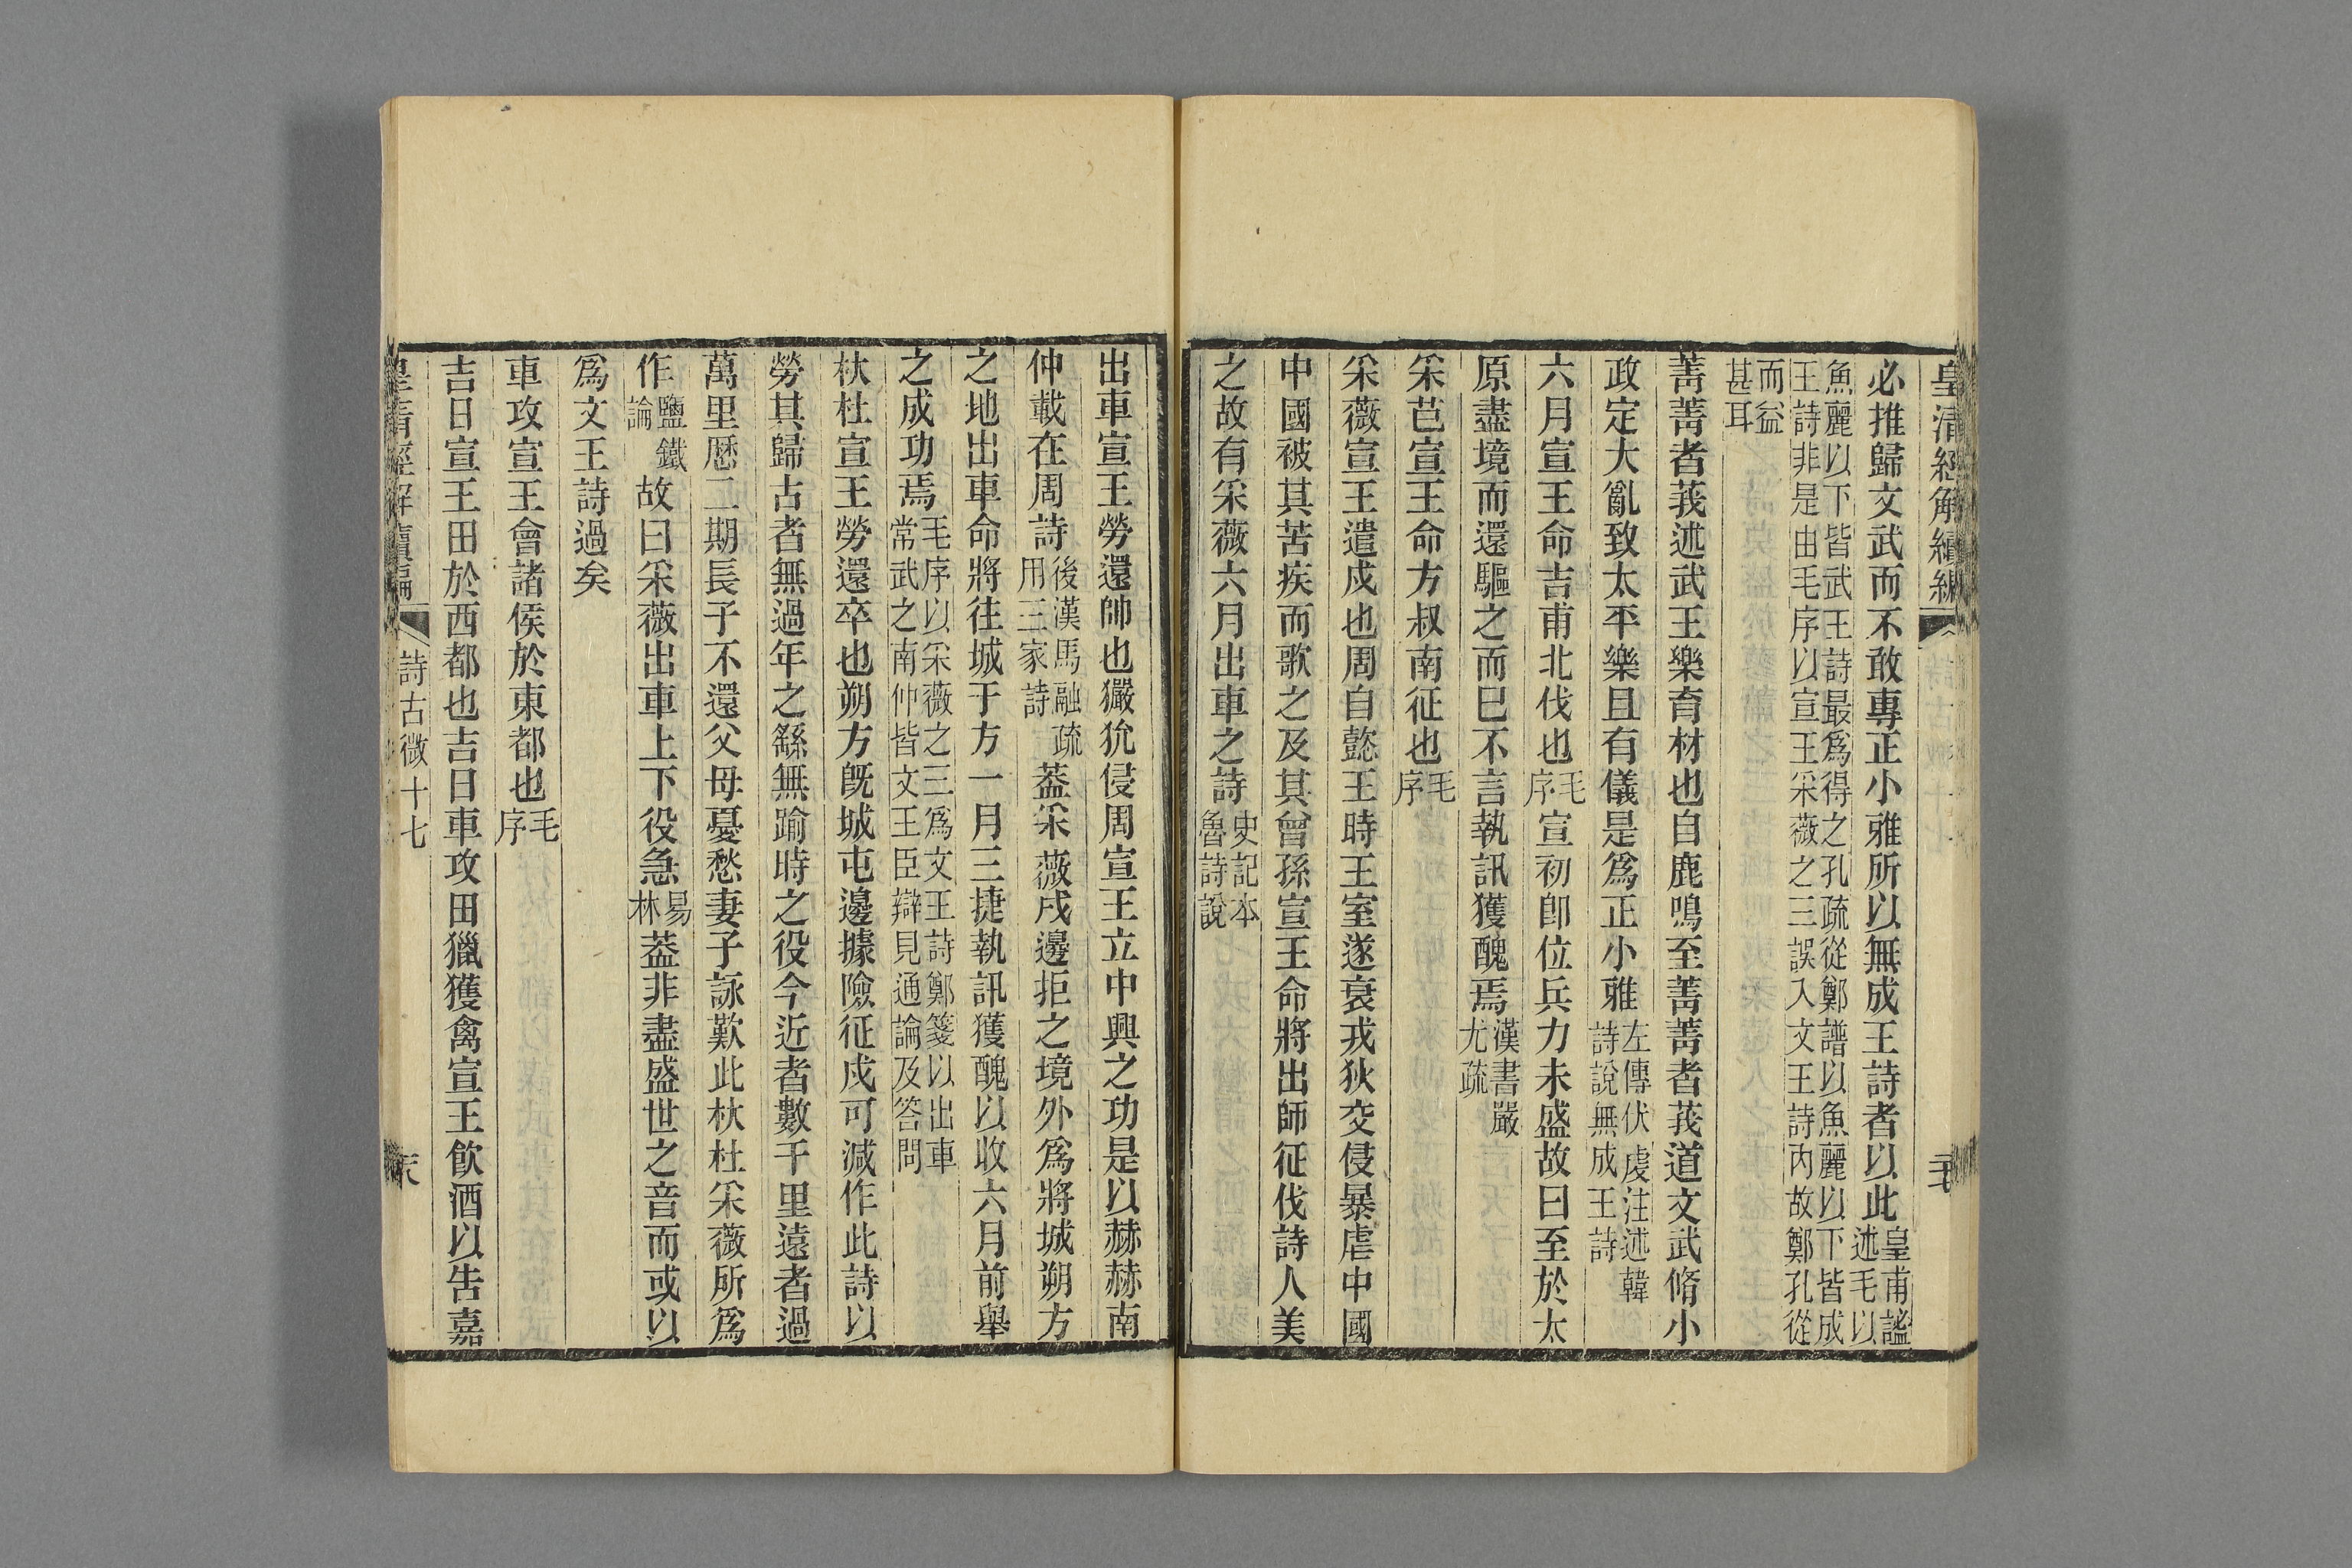 皇清經解續編
必推歸文武而不敢專正小雅所以無成王詩者以此皇甫謐述毛以
魚麗以下皆武王詩最爲得之孔疏從鄭譜以魚麗以下皆成王詩非是由毛序以宣王采薇之三誤入文王詩內故鄭孔從
而益甚耳
菁菁者莪述武王樂育材也自鹿鳴至菁菁者莪道文武脩小
政定大亂致太平樂且有儀是爲正小雅左傳伏虔注述韓詩說無成王詩
六月宣王命吉甫北伐也毛序宣初卽位兵力未盛故曰至於太
原盡境而還驅之而巳不言執訊獲醜焉漢書嚴尤疏
采芑宣王命方叔南征也毛序
采薇宣王遣戍也周自懿王時王室遂衰戎狄交侵暴虐中國
中國被其苦疾而歌之及其曾孫宣王命將出師征伐詩人美
之故有采薇六月出車之詩史記本魯詩說
出車宣王勞還帥也玁狁侵周宣王立中興之功是以赫赫南
仲載在周詩後漢馬融疏用三家詩葢采薇戍邊拒之境外爲將城朔方
之地出車命將往城于方一月三捷執訊獲醜以收六月前舉
之成功焉毛序以采薇之三爲文王詩鄭箋以出車常武之南仲皆文王臣辯見通論及答問
杕杜宣王勞還卒也朔方旣城屯邊據險征戍可減作此詩以
勞其歸古者無過年之繇無踰時之役今近者數千里遠者過
萬里歷二期長子不還父母憂愁妻子詠歎此杕杜采薇所爲
作鹽鐵論故曰采薇出車上下役急易林葢非盡盛世之音而或以
爲文王詩過矣
車攻宣王會諸侯於東都也毛序
吉日宣王田於西都也吉日車攻田獵獲禽宣王飮酒以告嘉
皇清經解續編
詩古微十七